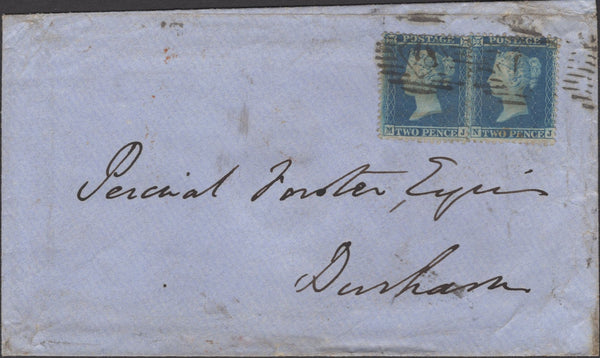 POSTAGE POSTAGE
M TWO PENCE J N TWO PENCE J
Percival Forster, Esqre
Durham